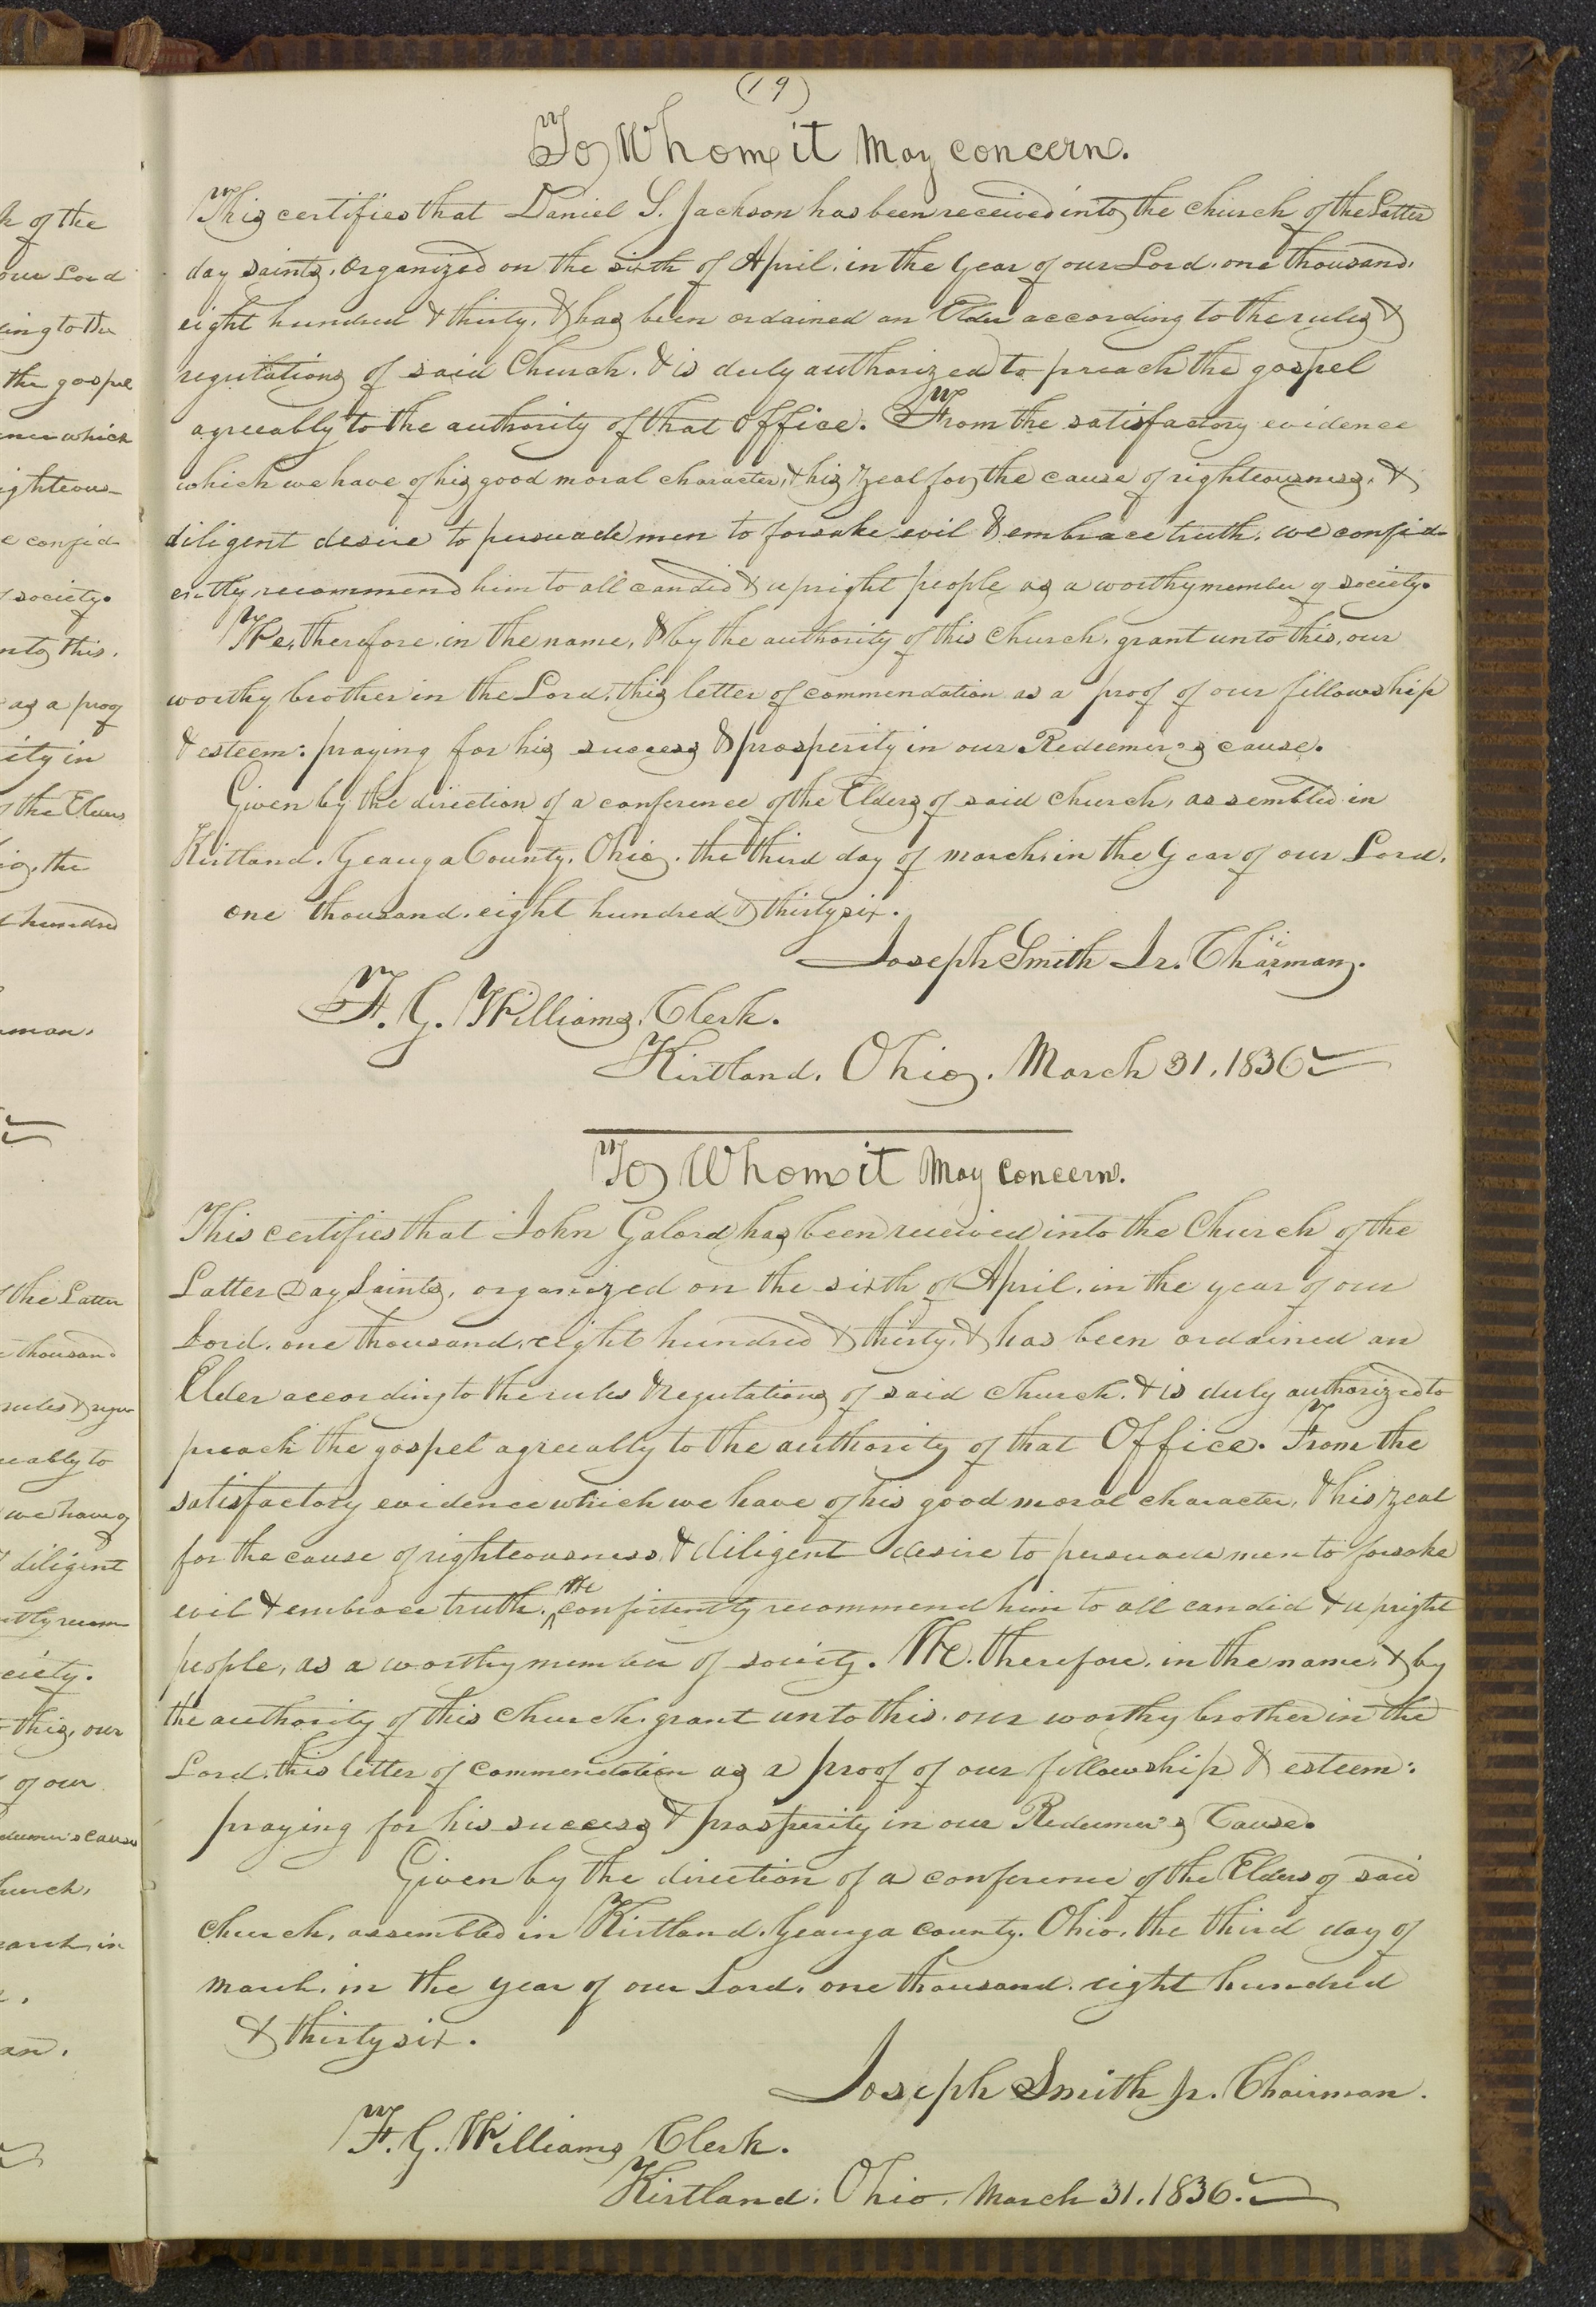 h of the
our Lord
ding to the
the gospel
which
ighteous-
e confid-
society.
nto this,
as a proof
rity in
of the Elders
the
hundred
man.
of the Latter
thousand
rules & regu-
eably to
we have of
diligent
ntly recom-
ciety.
this, our
of our
deemer's cause
hurch,
march, in
an.
(19)
To Whom it May concern.
This certifies that Daniel S. Jackson has been received into the church of the Latter
day saints, organized on the sixth of April, in the year of our Lord, one thousand,
eight hundred & thirty, & has been ordained an Elder according to the rules &
regulations of said Church, & is duly authorized to preach the gospel
agreeably to the authority of that office. From the satisfactory evidence
which we have of his good moral character, & his zeal for the cause of righteousness, &
diligent desire to persuade men to forsake evil & embrace truth, we confid-
ently recommend him to all candid & upright people as a worthy member of society.
We, therefore, in the name, & by the authority of this church, grant unto this, our
worthy brother in the Lord, this letter of commendation as a proof of our fellowship
& esteem: praying for his success & prosperity in our Redeemer's cause.
Given by the direction of a conference of the Elders of said church, assembled in
Kirtland, Geauga County, Ohio, the third day of march, in the year of our Lord,
one thousand, eight hundred & thirty six.
Joseph Smith Jr. Chairman.
F. G. Williams, Clerk.
Kirtland, Ohio, March 31, 1836
To Whom it May concern.
This certifies that John Galord has been received into the Church of the
Latter Day Saints, organized on the sixth of April, in the year of our
Lord, one thousand, eight hundred & thirty, & has been ordained an
Elder according to the rules & regulations of said church, & is duly authorized to
preach the gospel agreeably to the authority of that Office. From the
satisfactory evidence which we have of his good moral character, & his zeal
for the cause of righteousness, & diligent desire to persuade men to forsake
evil & embrace truth, We confidently recommend him to all candid & upright
people, as a worthy member of society. We, therefore, in the name, & by
the authority of this church, grant unto this, our worthy brother in the
Lord, this letter of commendation as a proof of our fellowship & esteem:
praying for his success & prosperity in our Redeemer's Cause.
Given by the direction of a conference of the Elders of said
church, assembled in Kirtland, Geauga county, Ohio, the third day of
march, in the year of our Lord, one thousand, eight hundred
& thirty six.
Joseph Smith Jr. Chairman.
F. G. Williams Clerk.
Kirtland, Ohio, March 31, 1836.